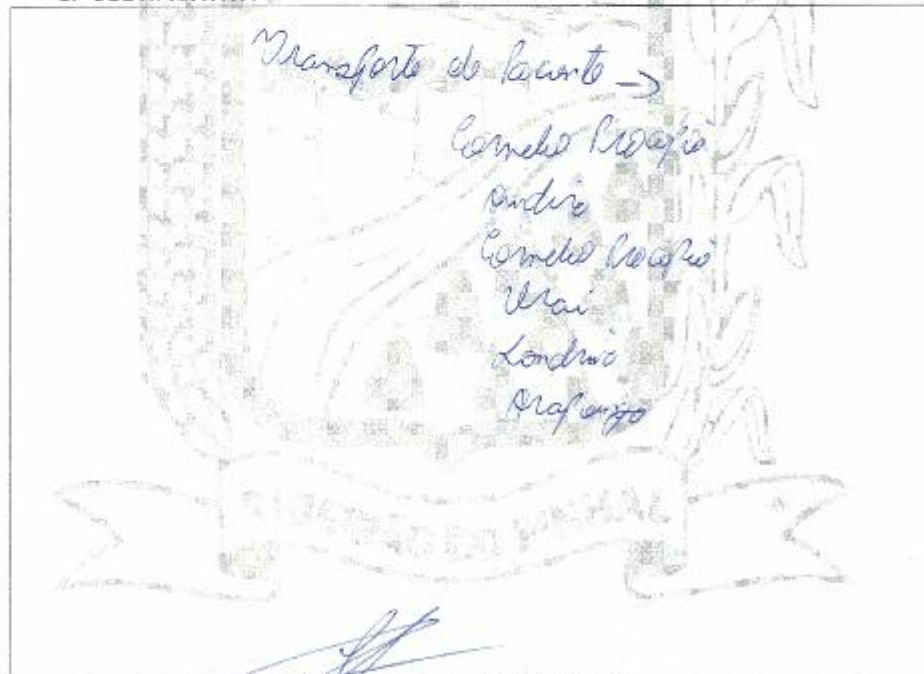 Transporte de Paciente →
Cornelio Procopio
Andira
Cornelio Procopio
Urai
Londrina
Arapongas